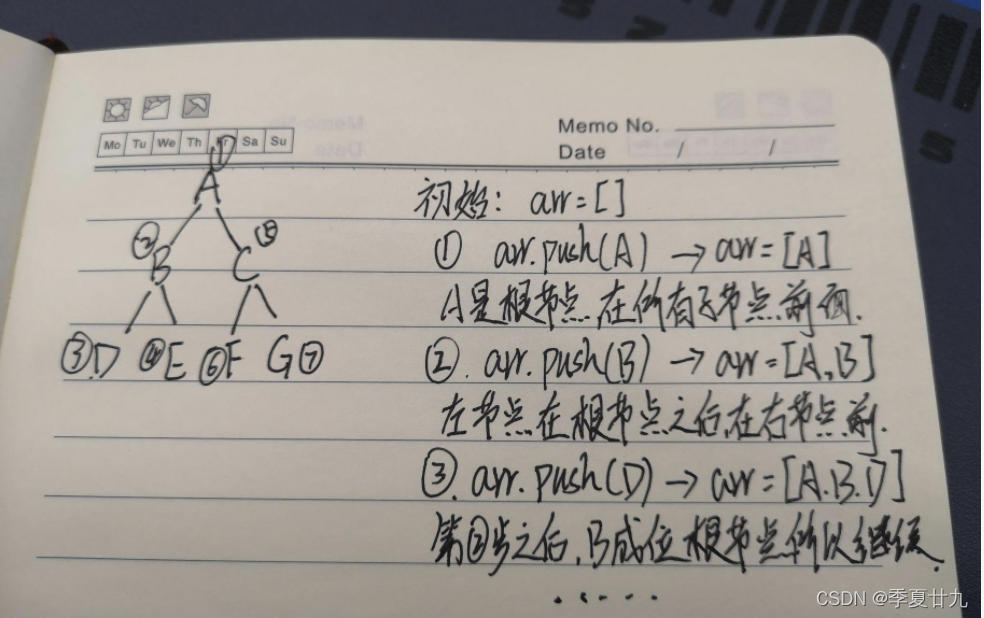 Memo No.
Mo Tu We Th Fr Sa Su
Date / /
①
A
② ⑤
B C
③.D ④E ⑥F G⑦
初始: arr=[]
① arr.push(A) → arr=[A]
A是根节点.在所有子节点前面.
②. arr.push(B) → arr=[A,B]
左节点在根节点之后,在右节点前.
③. arr.push(D) → arr=[A.B.D]
第②步之后,B成位根节点所以继续.
.....
CSDN @季夏廿九